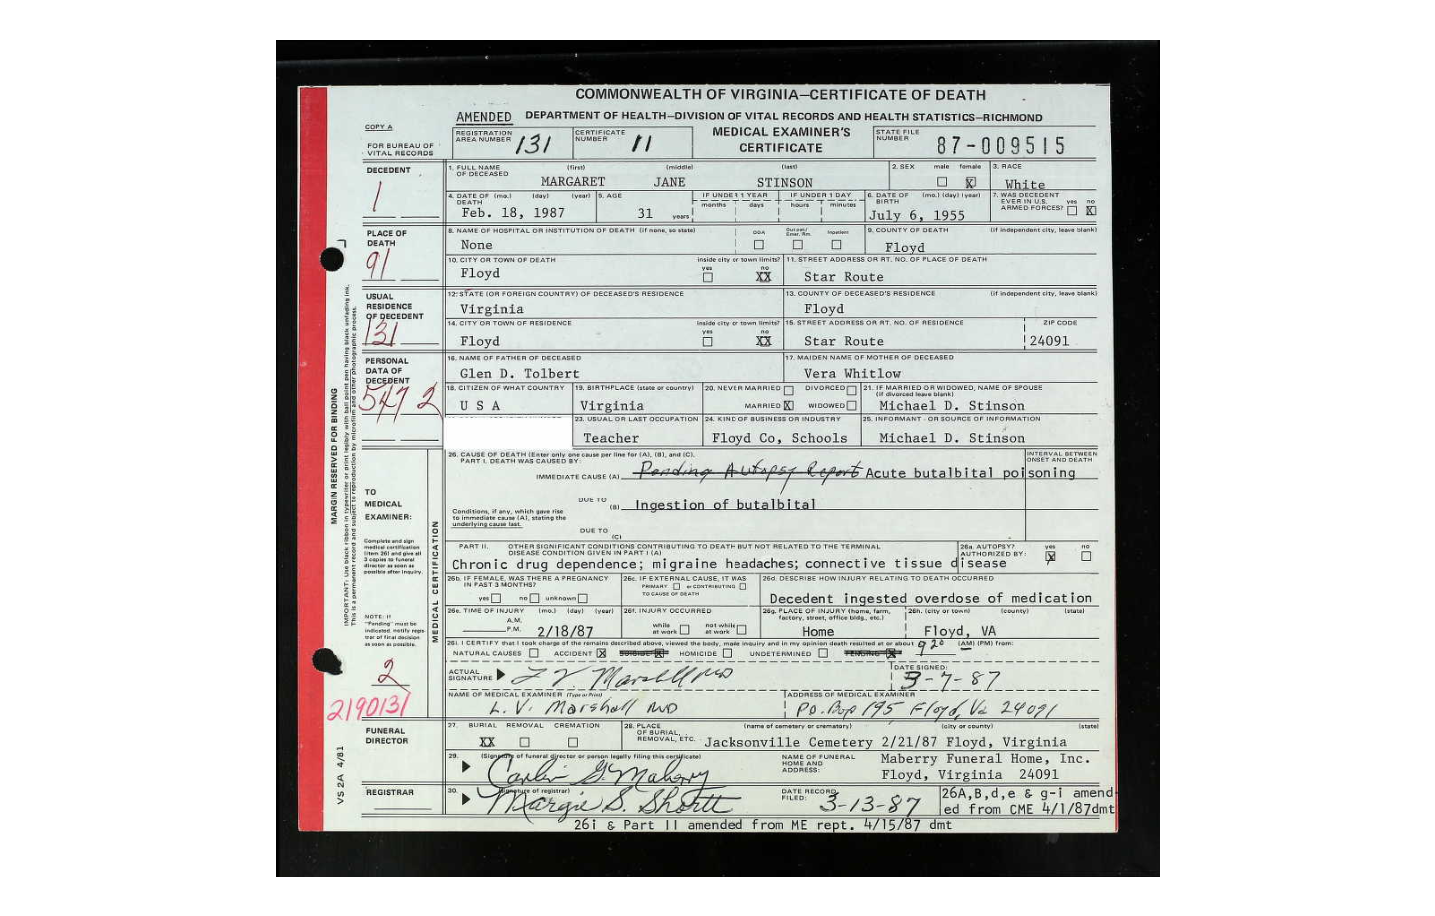 COMMONWEALTH OF VIRGINIA—CERTIFICATE OF DEATH
AMENDED DEPARTMENT OF HEALTH—DIVISION OF VITAL RECORDS AND HEALTH STATISTICS—RICHMOND
COPY A
FOR BUREAU OF VITAL RECORDS
REGISTRATION AREA NUMBER 131
CERTIFICATE NUMBER 11
MEDICAL EXAMINER'S CERTIFICATE
STATE FILE NUMBER 87-009515
DECEDENT
1
1. FULL NAME OF DECEASED (first) (middle) (last)
MARGARET JANE STINSON
2. SEX male female X
3. RACE White
4. DATE OF DEATH (mo.) (day) (year) Feb. 18, 1987
5. AGE 31 years
IF UNDER 1 YEAR months days
IF UNDER 1 DAY hours minutes
6. DATE OF BIRTH (mo.) (day) (year) July 6, 1955
7. WAS DECEDENT EVER IN U.S. ARMED FORCES? yes no X
PLACE OF DEATH
91
8. NAME OF HOSPITAL OR INSTITUTION OF DEATH (if none, so state)
None
DOA Out-pat/Emer. Rm. Inpatient
9. COUNTY OF DEATH (if independent city, leave blank)
Floyd
10. CITY OR TOWN OF DEATH inside city or town limits? yes no
Floyd XX
11. STREET ADDRESS OR RT. NO. OF PLACE OF DEATH
Star Route
USUAL RESIDENCE OF DECEDENT
131
12. STATE (OR FOREIGN COUNTRY) OF DECEASED'S RESIDENCE
Virginia
13. COUNTY OF DECEASED'S RESIDENCE (if independent city, leave blank)
Floyd
14. CITY OR TOWN OF RESIDENCE inside city or town limits? yes no
Floyd XX
15. STREET ADDRESS OR RT. NO. OF RESIDENCE ZIP CODE
Star Route 24091
PERSONAL DATA OF DECEDENT
547 2
16. NAME OF FATHER OF DECEASED
Glen D. Tolbert
17. MAIDEN NAME OF MOTHER OF DECEASED
Vera Whitlow
18. CITIZEN OF WHAT COUNTRY
U S A
19. BIRTHPLACE (state or country)
Virginia
20. NEVER MARRIED DIVORCED
MARRIED X WIDOWED
21. IF MARRIED OR WIDOWED, NAME OF SPOUSE (if divorced leave blank)
Michael D. Stinson
23. USUAL OR LAST OCCUPATION
Teacher
24. KIND OF BUSINESS OR INDUSTRY
Floyd Co, Schools
25. INFORMANT - OR SOURCE OF INFORMATION
Michael D. Stinson
MARGIN RESERVED FOR BINDING
IMPORTANT: Use black ribbon in typewriter or print legibly with ball point pen having black unfading ink.
This is a permanent record and subject to reproduction by microfilm and other photographic process.
TO MEDICAL EXAMINER:
Complete and sign medical certification (Item 26) and give all 3 copies to funeral director as soon as possible after inquiry.
NOTE: If "Pending" must be indicated notify registrar of final decision as soon as possible.
MEDICAL CERTIFICATION
26. CAUSE OF DEATH (Enter only one cause per line for (A), (B), and (C).
PART I. DEATH WAS CAUSED BY:
INTERVAL BETWEEN ONSET AND DEATH
IMMEDIATE CAUSE (A) Pending Autopsy Report Acute butalbital poisoning
DUE TO (B) Ingestion of butalbital
Conditions, if any, which gave rise to immediate cause (A), stating the underlying cause last.
DUE TO (C)
PART II. OTHER SIGNIFICANT CONDITIONS CONTRIBUTING TO DEATH BUT NOT RELATED TO THE TERMINAL DISEASE CONDITION GIVEN IN PART I (A)
Chronic drug dependence; migraine headaches; connective tissue disease
26a. AUTOPSY? AUTHORIZED BY: yes X no
26b. IF FEMALE, WAS THERE A PREGNANCY IN PAST 3 MONTHS?
yes no unknown
26c. IF EXTERNAL CAUSE, IT WAS
PRIMARY or CONTRIBUTING
TO CAUSE OF DEATH
26d. DESCRIBE HOW INJURY RELATING TO DEATH OCCURRED
Decedent ingested overdose of medication
26e. TIME OF INJURY (mo.) (day) (year)
A.M.
P.M. 2/18/87
26f. INJURY OCCURRED
while at work not while at work
26g. PLACE OF INJURY (home, farm, factory, street, office bldg., etc.)
Home
26h. (city or town) (county) (state)
Floyd, VA
26i. I CERTIFY that I took charge of the remains described above, viewed the body, made inquiry and in my opinion death resulted at or about 9 20 (AM) (PM) from:
NATURAL CAUSES ACCIDENT X SUICIDE X HOMICIDE UNDETERMINED PENDING X
ACTUAL SIGNATURE L V Marshall MD
DATE SIGNED: 3-7-87
2
2190131
NAME OF MEDICAL EXAMINER (Type or Print)
L. V. Marshall MD
ADDRESS OF MEDICAL EXAMINER
PO. Box 195 Floyd, Va 24091
FUNERAL DIRECTOR
27. BURIAL REMOVAL CREMATION
XX
28. PLACE OF BURIAL, REMOVAL, ETC. (name of cemetery or crematory) (city or county) (state)
Jacksonville Cemetery 2/21/87 Floyd, Virginia
29. (Signature of funeral director or person legally filing this certificate)
NAME OF FUNERAL HOME AND ADDRESS:
Maberry Funeral Home, Inc.
Floyd, Virginia 24091
VS 2A 4/81
REGISTRAR
30. (Signature of registrar)
Margie S. Shortt
DATE RECORD FILED: 3-13-87
26A,B,d,e & g-i amend-
ed from CME 4/1/87dmt
26i & Part II amended from ME rept. 4/15/87 dmt